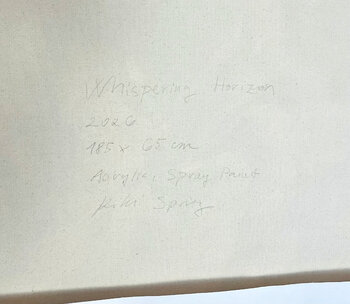 Whispering Horizon
2026
185 x 65 cm
Acrylic, Spray Paint
Spatz